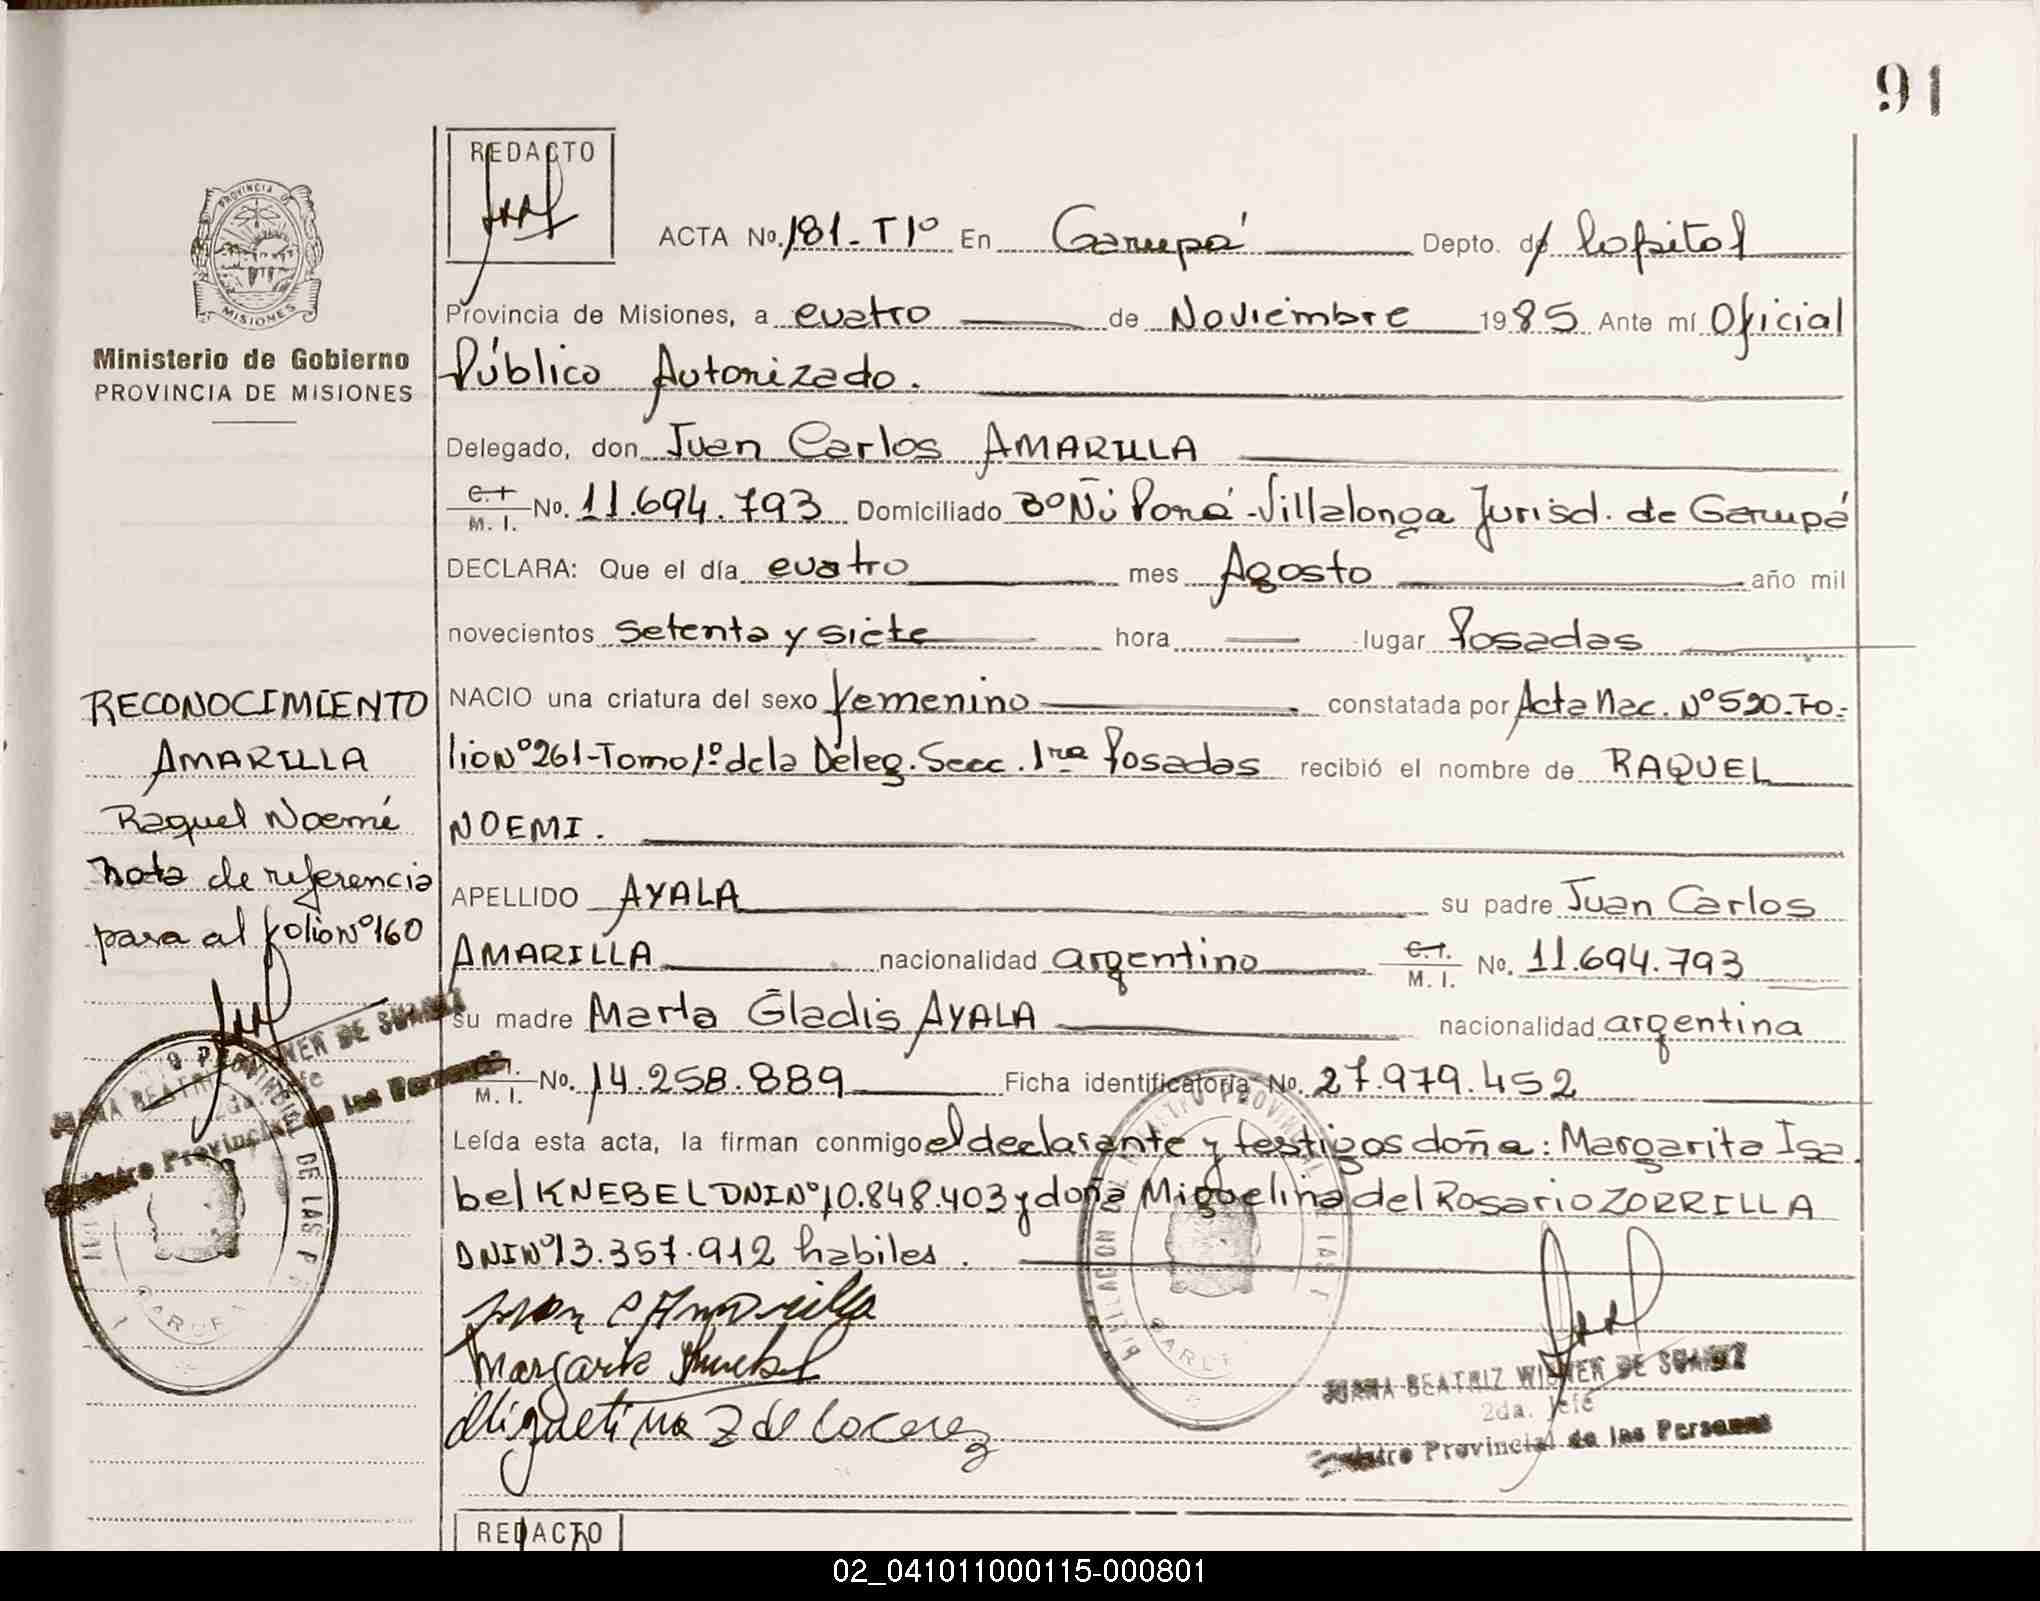 91
REDACTO
ACTA No. 181 - T 1º En Garupá Depto. d/ Capital
Provincia de Misiones, a cuatro de Noviembre 1985 Ante mí Oficial
Público Autorizado.
Delegado, don Juan Carlos AMARILLA
C.I. M. I. No. 11.694.793 Domiciliado Bº Ñú Porá - Villalonga Jurisd. de Garupá
DECLARA: Que el día cuatro mes Agosto año mil
novecientos setenta y siete hora lugar Posadas
NACIO una criatura del sexo femenino constatada por Acta Nac. Nº 520 - Fo-
lio Nº 261 - Tomo 1º de la Deleg. Secc. 1ra Posadas recibió el nombre de RAQUEL
NOEMI.
APELLIDO AYALA su padre Juan Carlos
AMARILLA nacionalidad argentino C.I. M. I. No. 11.694.793
su madre Marta Gladis AYALA nacionalidad argentina
M. I. No. 14.258.889 Ficha identificatoria No. 27.979.452
Leída esta acta, la firman conmigo el declarante y testigos doña: Margarita Isa
bel KNEBEL DNI Nº 10.848.403 y doña Miguelina del Rosario ZORRILLA
DNI Nº 13.357.912 habiles.
Juan C Amarilla
Margarita Knebel
Miguelina Z de
JUANA BEATRIZ WISNER DE SUAREZ
2da. Jefe
Registro Provincial de las Personas
PROVINCIA DE
MISIONES
Ministerio de Gobierno
PROVINCIA DE MISIONES
RECONOCIMIENTO
AMARILLA
Raquel Noemí
Nota de referencia
para al folio Nº 160
JUANA BEATRIZ WISNER DE SUAREZ
2da. Jefe
Registro Provincial de las Personas
REDACTO
02_041011000115-000801